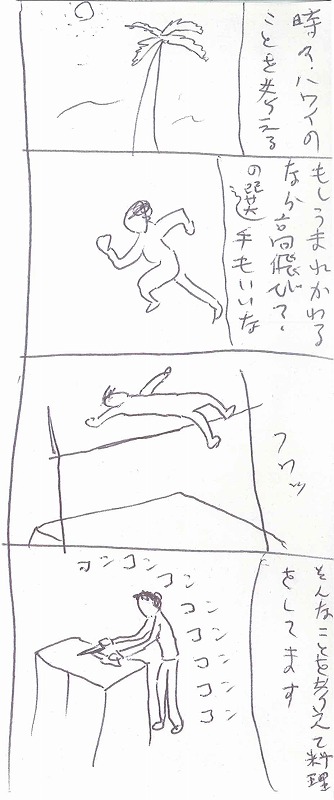 時々ハワイの
ことを考える
もしうまれかわる
なら高飛び?
の選手もいいな
フワッ
そんなことを考えて料理
をしてます
コンコン
コン
コン
コン
コン
コン
コン